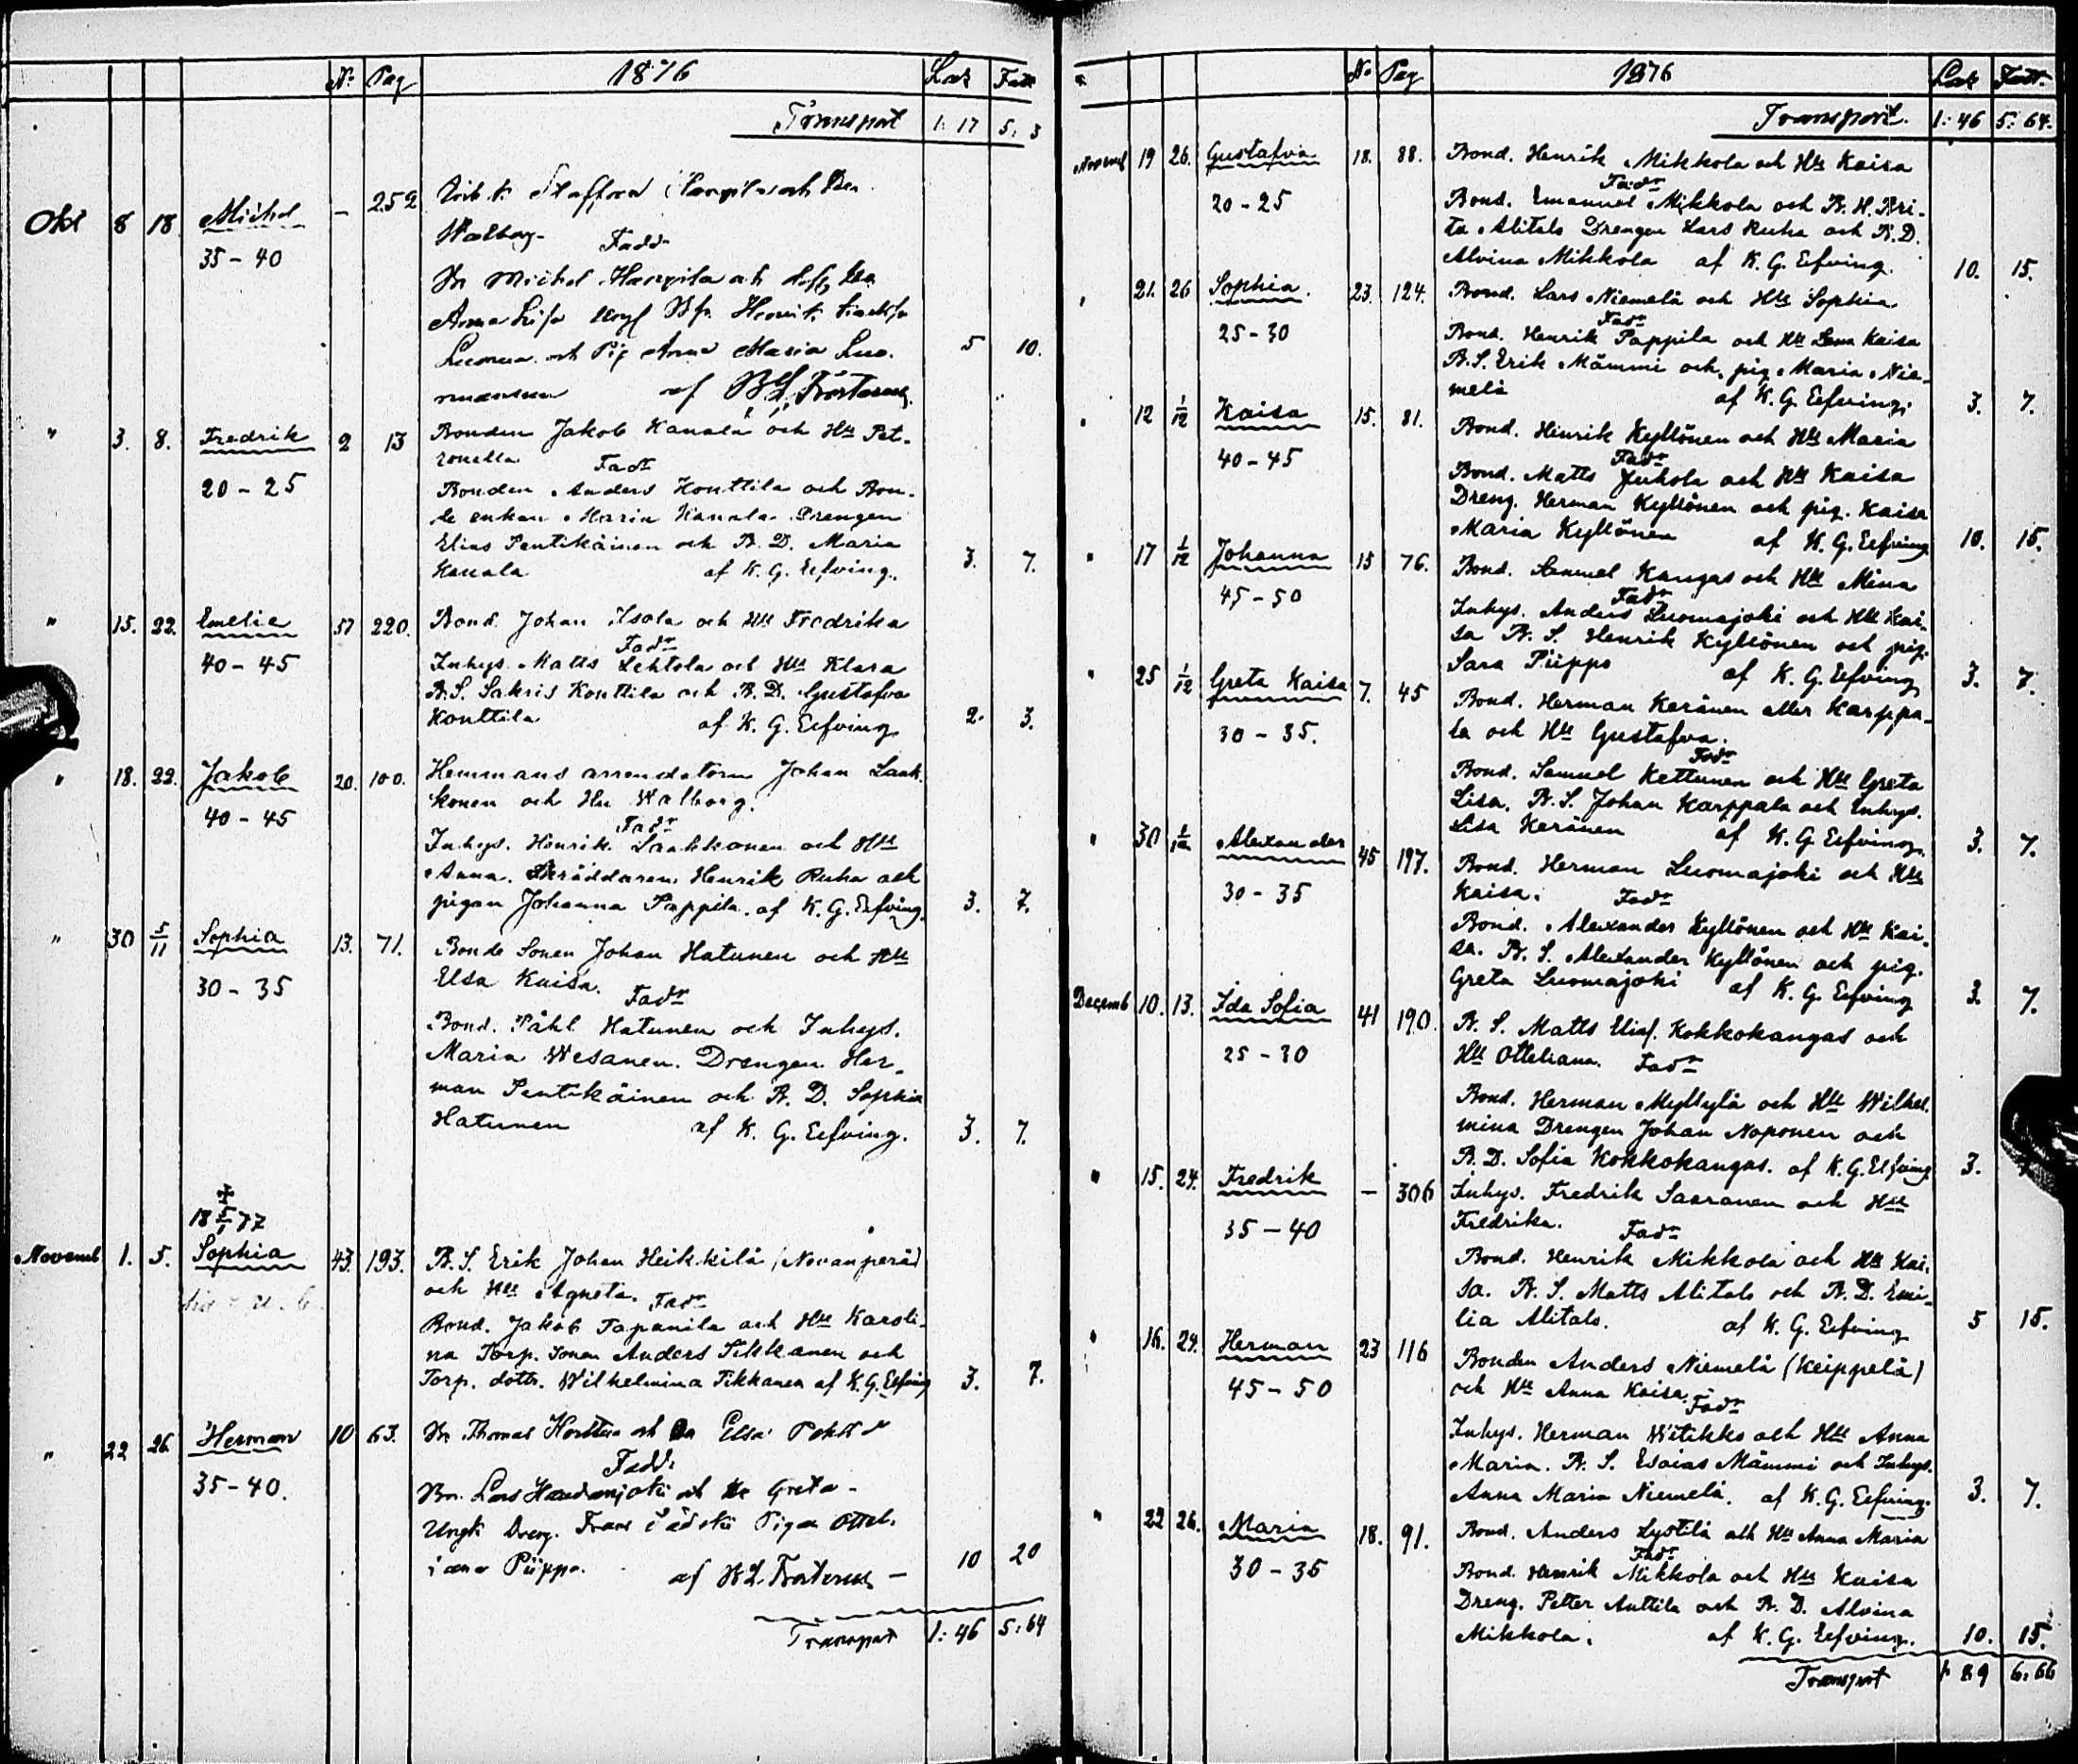 No Pag 1876 Laz Fatt
Transport 1:17 5:3
Okt 8 18 Michel — 252
Walborg. Fadd
35-40
Bn Michel och
Anna Lisa
och Pig Anna Maria
5 10.
af
" 3. 8. Fredrik 2 13 Bonden Jakob Kanala och Hu Pet-
ronella Fadr
20-25 Bonden Anders Honttila och Bon-
de enkan Maria Kanala. Drengen
Elias Pentikäinen och B. D. Maria
Kanala af K. G. Eefving. 3. 7.
" 15. 22. Emelie 57 220. Bond. Johan Isola och Hu Fredrika
Fadr
40-45 Inhys. Matts Lehtola och Hu Klara
B. S. Sakris Konttila och B. D. Gustafva
Konttila af K. G. Eefving 2. 3.
" 18. 22. Jakob 20. 100. Hemmans arrendatorn Johan Laak
konen och Hu Walborg.
40-45 Fadr
Inhys. Henrik Laakkonen och Hu
Anna. Skräddaren Henrik Ruha och
pigan Johanna Pappila. af K. G. Eefving. 3. 7.
" 30 5/11 Sophia 13. 71. Bonde Sonen Johan Hatunen och Hu
Elsa Kaisa. Fadr
30-35
Bond. Påhl Hatunen och Inhys.
Maria Wesanen. Drengen Her-
man Pentikäinen och B. D. Sophia
Hatunen af K. G. Eefving. 3. 7.
18 5/1 77
Novemb 1. 5. Sophia 43. 193. B. S. Erik Johan Heikkilä (Novanperä)
och Hu Agneta. Fadr
Bond. Jakob Tapanila och Hu Karoli-
na Torp. Sonen Anders Tikkanen och
Torp. dottr. Wilhelmina Tikkanen af K. G. Eefving 3. 7.
" 22 26 Herman 10 63. Bn Thomas och Elsa
Fadd.
35-40. Bn. Lars och Greta
Drng. Frans Piga Ottil-
iana Piippo. af 10 20
Transport 1:46 5:64
No Pag 1876 Laz Fatt.
Transport. 1:46 5:64.
Novemb 19 26. Gustafva 18. 88. Bond. Henrik Mikkola och Hu Kaisa
Fadr
20-25 Bond. Emanuel Mikkola och B. H. Bri-
ta Alitalo Drengen Lars Ruha och B. D.
Alvina Mikkola af K. G. Eefving. 10. 15.
" 21. 26 Sophia. 23. 124. Bond. Lars Niemelä och Hu Sophia
Fadr
25-30 Bond. Henrik Pappila och Hu Lena Kaisa
B. S. Erik Mämmi och pig. Maria Nie-
melä af K. G. Eefving. 3. 7.
" 12 1/12 Kaisa 15. 81. Bond. Hinrik Kyllönen och Hu Maria
Fadr
40-45 Bond. Matts Jukola och Hu Kaisa
Dreng. Herman Kyllönen och pig. Kaisa
Maria Kyllönen af K. G. Eefving 10. 15.
" 17 1/12 Johanna 15 76. Bond. Samuel Kangas och Hu Mina
Fadr
45-50 Inhys. Anders Luomajoki och Hu Kai-
sa B. S. Henrik Kyllönen och pig.
Sara Piippo af K. G. Eefving 3. 7.
" 25 1/12 Greta Kaisa 7. 45 Bond. Herman Keränen eller Karppa-
la och Hu Gustafva.
30-35. Fadr
Bond. Samuel Kettunen och Hu Greta
Lisa. B. S. Johan Karppala och Inhys.
Lisa Keränen af K. G. Eefving. 3. 7.
" 30 1/12 Alexander 45 197. Bond. Herman Luomajoki och Hu
Kaisa. Fadr
30-35 Bond. Alexander Kyllönen och Hu Kai-
sa. B. S. Alexander Kyllönen och pig.
Greta Luomajoki af K. G. Eefving 3. 7.
Decemb 10. 13. Ida Sofia 41 190. B. S. Matts Eliaf. Kokkokangas och
Hu Otteliana. Fadr
25-30
Bond. Herman Myllylä och Hu Wilhel-
mina Drengen Johan Noponen och
B. D. Sofia Kokkokangas. af K. G. Eefving 3.
" 15. 24. Fredrik — 306 Inhys. Fredrik Saaranen och Hu
Fredrika. Fadr
35-40 Bond. Henrik Mikkola och Hu Kai-
sa. B. S. Matts Alitalo och B. D. Emi-
lia Alitalo. af K. G. Eefving 5 15.
" 16. 24. Herman 23 116 Bonden Anders Niemelä (Keippelä)
och Hu Anna Kaisa.
45-50 Fadr
Inhys. Herman Witikko och Hu Anna
Maria. B. S. Esaias Mämmi och Inhys.
Anna Maria Niemelä. af K. G. Eefving. 3. 7.
" 22 26. Maria 18. 91. Bond. Anders Lystilä och Hu Anna Maria
Fadr
30-35 Bond. Henrik Mikkola och Hu Kaisa
Dreng. Petter Anttila och B. D. Alvina
Mikkola. af K. G. Eefving. 10. 15.
Transport 1:89 6:66